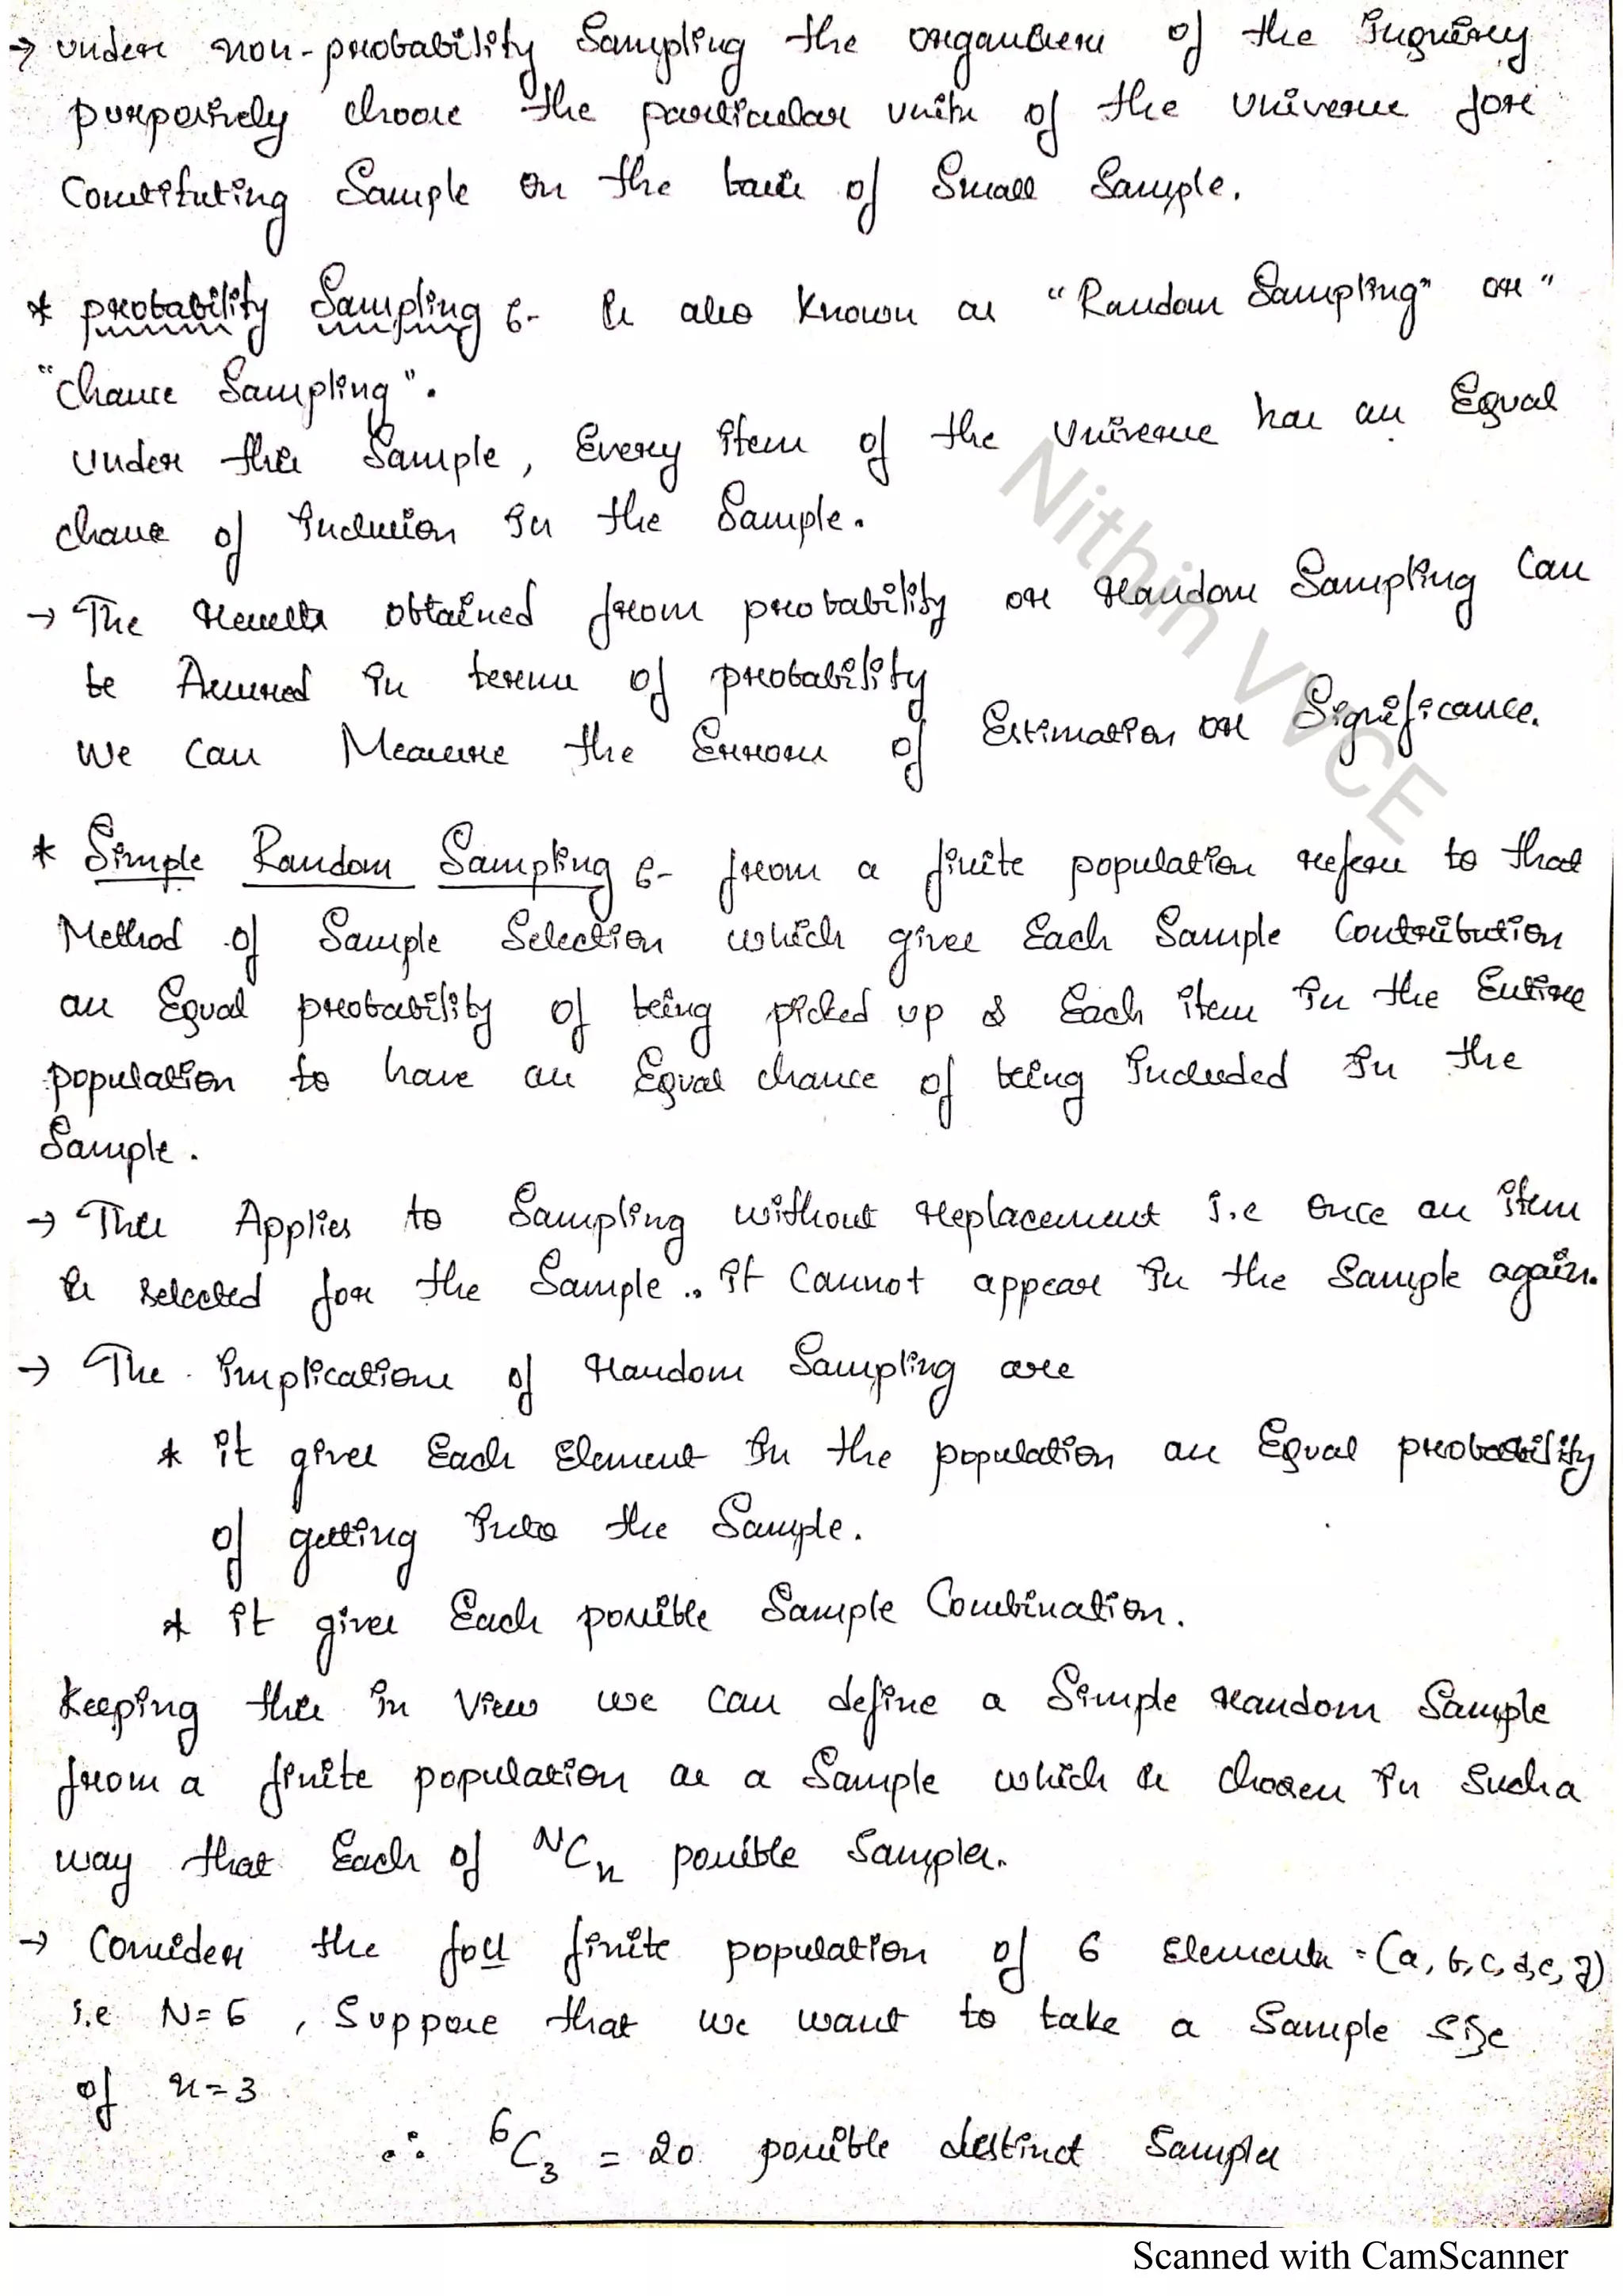 → under non-probability Sampling the organizers of the Inquiry
purposively choose the particular units of the universe for
Constituting Sample on the basis of Small Sample.
* probability Sampling :- Is also known as "Random Sampling" or "
"Chance Sampling".
Under this Sample, Every item of the Universe has an Equal
chance of Inclusion In the Sample.
→ The results obtained from probability or random Sampling Can
be Assured in terms of probability
We Can Measure the Errors of Estimation or Significance.
* Simple Random Sampling :- from a finite population refers to that
Method of Sample Selection which gives Each Sample Contribution
an Equal probability of being picked up & Each item in the Entire
population to have an Equal chance of being Included In the
Sample.
→ This Applies to Sampling without replacement i.e Once an item
Is selected for the Sample.. it Cannot appear in the Sample again.
→ The Implications of random Sampling are
* it gives Each Element In the population an Equal probability
of getting Into the Sample.
* it gives Each possible Sample Combination.
Keeping this in View we can define a Simple random Sample
from a finite population as a Sample which is chosen in such a
way that Each of ᴺCₙ possible Samples.
→ Consider the foll finite population of 6 Elements = (a, b, c, d, e, f)
i.e N=6 , Suppose that we want to take a Sample size
of n=3
∴ ⁶C₃ = 20 possible distinct Samples
Nithin VVCE
Scanned with CamScanner